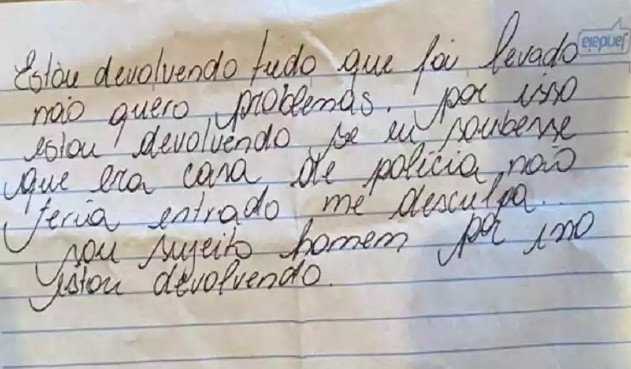 Estou devolvendo tudo que foi levado
não quero problemas. por isso
estou devolvendo, se eu soubesse
que era casa de policia, não
teria entrado me desculpa..
sou sujeito homem por isso
estou devolvendo.
jandaia